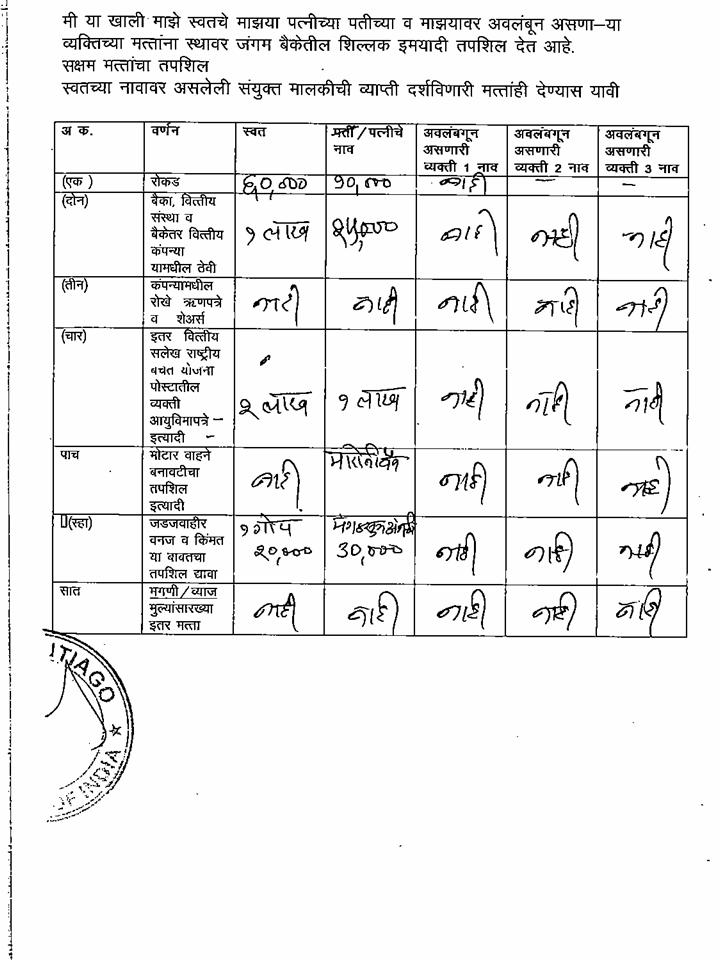 मी या खाली माझे स्वतचे माझया पत्नीच्या पतीच्या व माझयावर अवलंबून असणा–या
व्यक्तिच्या मत्तांना स्थावर जंगम बैकेतील शिल्लक इमयादी तपशिल देत आहे.
सक्षम मत्तांचा तपशिल
स्वतच्या नावावर असलेली संयुक्त मालकीची व्याप्ती दर्शविणारी मत्तांही देण्यास यावी
अ क. वर्णन स्वत पती/पत्नीचे नाव अवलंबगून असणारी व्यक्ती 1 नाव अवलंबगून असणारी व्यक्ती 2 नाव अवलंबगून असणारी व्यक्ती 3 नाव
(एक ) रोकड ६०,००० १०,००० नाही — —
(दोन) बैका, वित्तीय
संस्था व
बैकेतर वित्तीय
कंपन्या
यामधील ठेवी
१ लाख २५,००० नाही नाही नाही
(तीन) कंपन्यामधील
रोखे ऋणपत्रे
व शेअर्स
नाही नाही नाही नाही नाही
(चार) इतर वित्तीय
सलेख राष्ट्रीय
बचत योजना
पोस्टातील
व्यक्ती
आयुविमापत्रे –
इत्यादी –
२ लाख १ लाख नाही नाही नाही
पाच मोटार वाहने
बनावटीचा
तपशिल
इत्यादी
नाही नाही नाही नाही
(स्हा) जडजवाहीर
वनज व किंमत
या बाबतचा
तपशिल द्यावा
१ गोप
२०,०००
३०,००० नाही नाही नाही
सात मगणी/व्याज
मुल्यांसारख्या
इतर मत्ता
नाही नाही नाही नाही नाही
TIAGO
OF INDIA